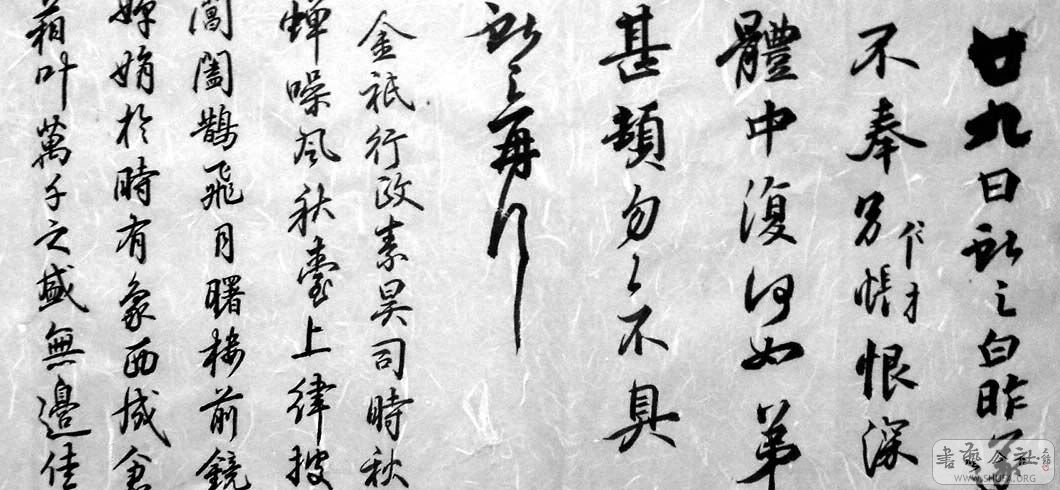 廿九日獻之白昨遂
不奉別悵恨深
體中復何如弟
甚頓勿々不具
獻之再拜
金祇行政素昊司時秋
蟬噪風秋臺上律披
閶闔鵲飛月曙樓前鏡
嬋娟於時有象西城倉
箱叶萬千之盛無邊佳
書藝公社
WWW.SHUFA.ORG